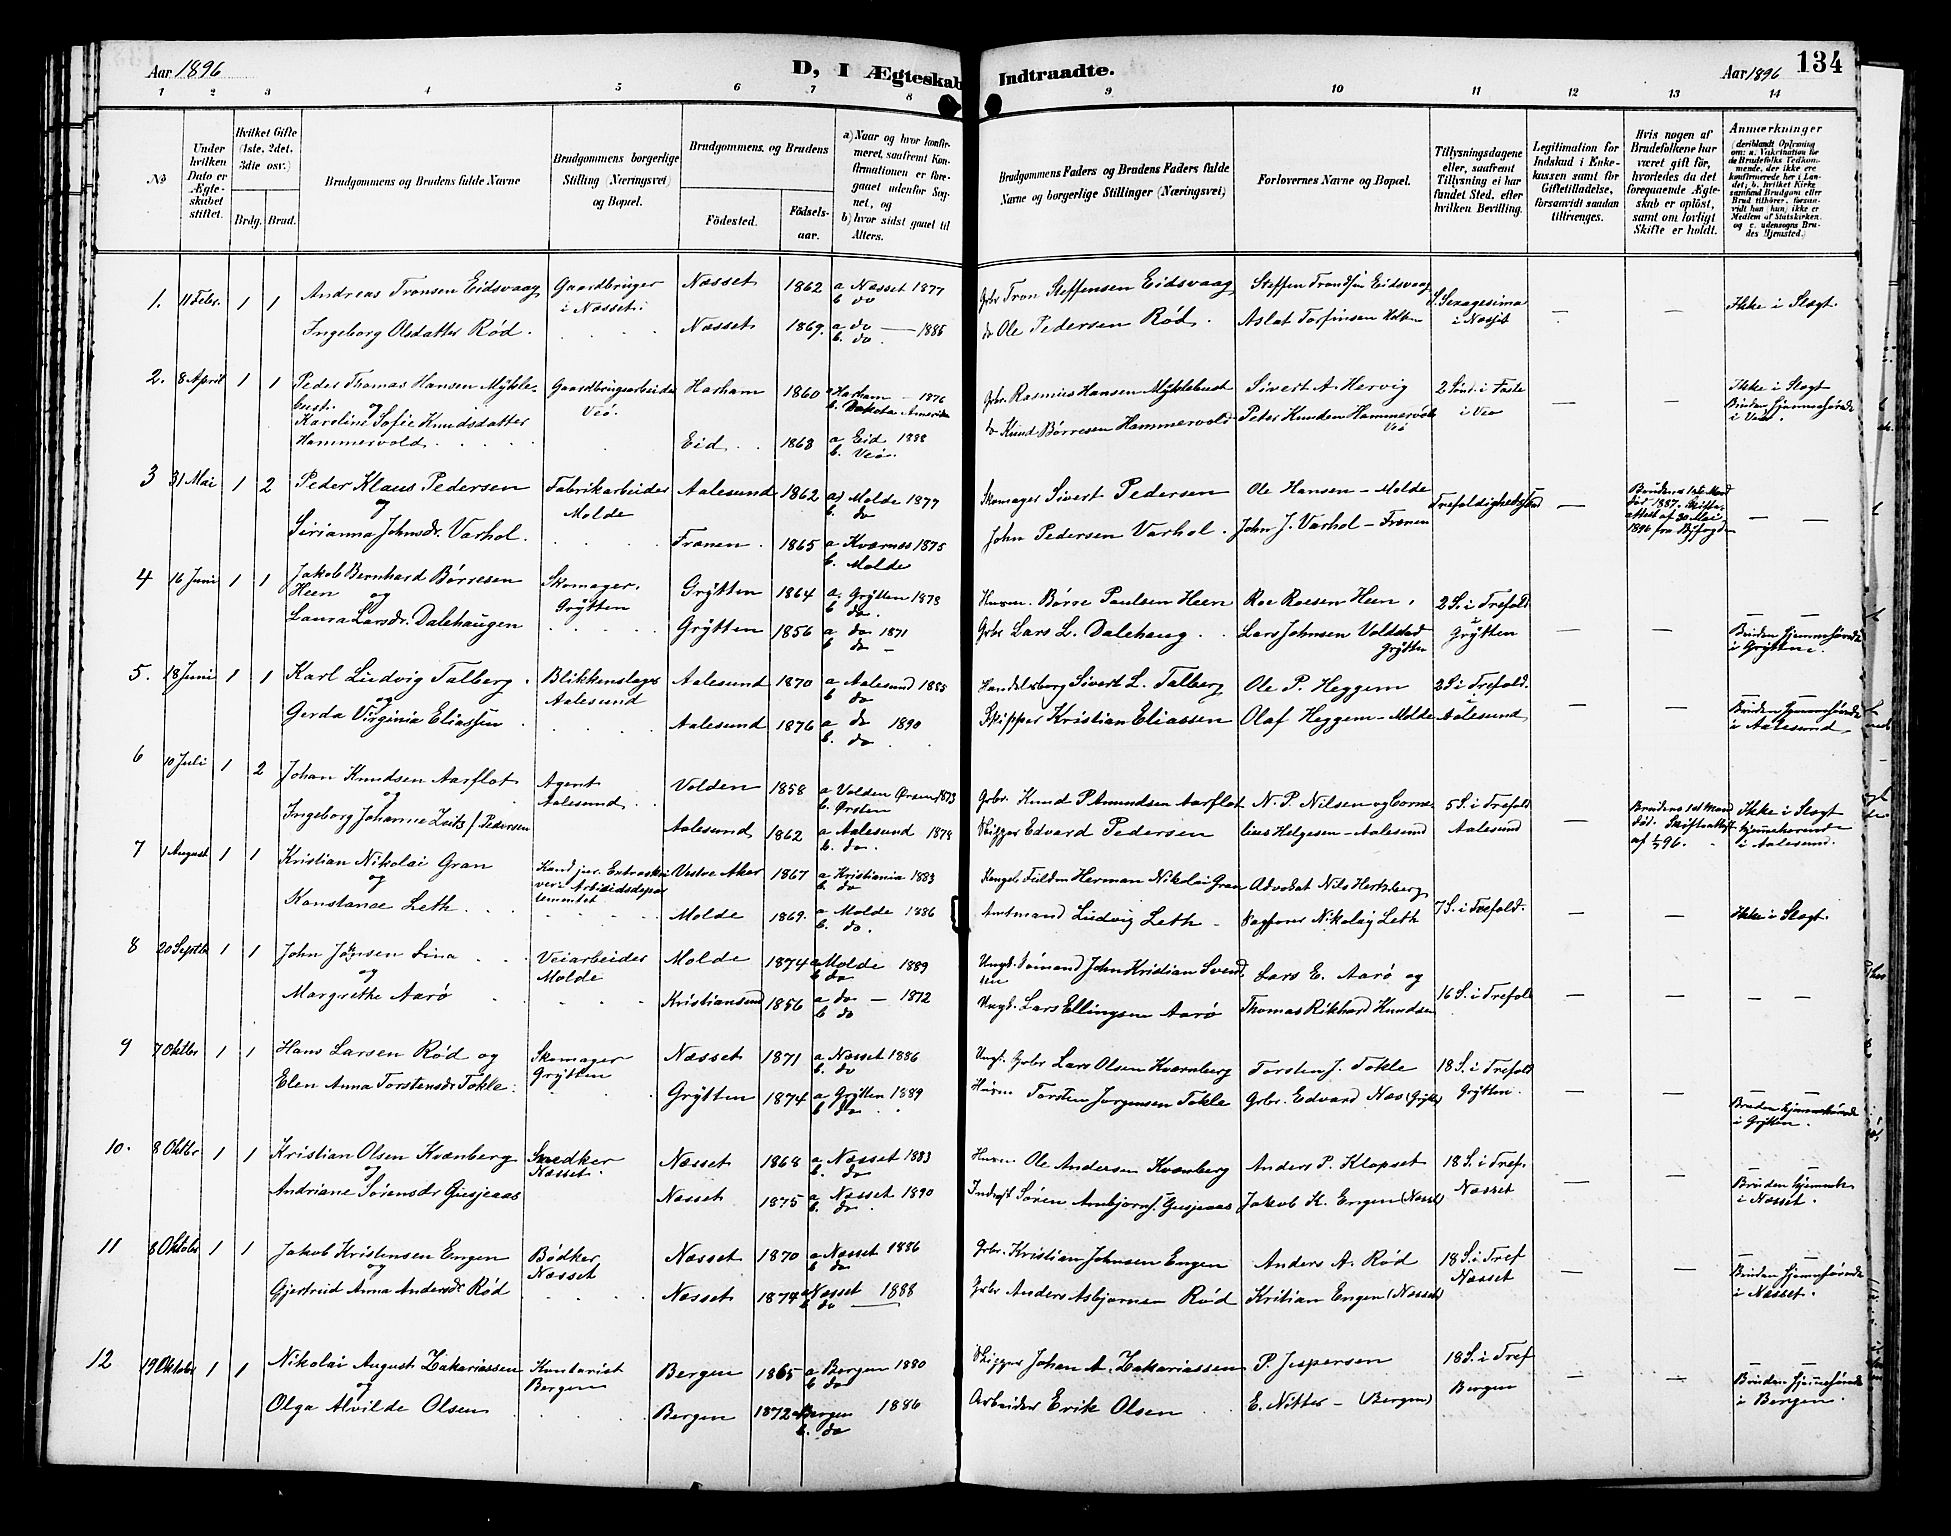 Aar 1896
D, I Ægteskab Indtraadte.
Aar 1896
134
1 2 3 4 5 6 7 8 9 10 11 12 13 14
No
Under hvilken Dato er Ægteskabet stiftet.
Hvilket Gifte (1ste, 2det, 3die osv.)
Brdg. Brud.
Brudgommens og Brudens fulde Navne
Brudgommens borgerlige Stilling (Næringsvei) og Bopæl.
Brudgommens og Brudens
Fødested.
Fødselsaar.
a) Naar og hvor konfirmeret, saafremt Konfirmationen er foregaaet udenfor Sognet, og
b) hvor sidst gaaet til Alters.
Brudgommens Faders og Brudens Faders fulde Navne og borgerlige Stillinger (Næringsvei)
Forlovernes Navne og Bopæl.
Tillysningsdagene eller, saafremt Tillysning ei har fundet Sted, efter hvilken Bevilling.
Legitimation for Indskud i Enkekassen samt for Giftetilladelse, forsaavidt saadan tiltrænges.
Hvis nogen af Brudefolkene har været gift før, hvorledes da det foregaaende Ægteskab er opløst, samt om lovligt Skifte er holdt.
Anmerkninger
1. 11 Febr. 1 1 Andreas Tronsen Eidsvaag Gaardbruger i Næsset. Næsset 1862 a Næsset 1877 b do Gbr Tron Steffensen Eidsvaag Steffen Trondsen Eidsvaag S. Sexagesima i Næsset — — Ikke i Slægt.
Ingeborg Olsdatter Rød. Næsset 1869. a do — 1885 b. do. do Ole Pedersen Rød. Aslak Torfinsen
2. 8 April 1 1 Peder Thomas Hansen Myklebust og Gaardbrugsarbeider Veø. Harham 1860 a Harham — 1876 b. Dakota Amerika Gbr. Rasmus Hansen Myklebust Sivert A. Hervig 2 Sønd. i Faste i Veø — — Ikke i Slægt Bruden hjemmehørende i Veø.
Karoline Sofie Knudsdatter Hammervold Eid 1868 a Eid 1882 b. Veø. do Knud Børresen Hammervold Peter Knudsen Hammervold Veø
3 31 Mai 1 2 Peder Klaus Pedersen og Fabrikarbeider Molde Aalesund 1862 a) Molde 1877 b. do Skomager Sivert Pedersen Ole Hansen — Molde Trefoldighedssønd — Brudens 1ste Mand død 1887. Skifteattest af 30 Mai 1896 fra Byfogden — —
Sirianna Johnsdr. Varhol. Frænen. 1865 a. Kværnæs 1875 b. Molde John Pedersen Varhol. John J. Varhol — Frænen
4 16 Juni 1 1 Jakob Bernhard Børresen Heen og Skomager. Grytten Grytten 1864 a. Grytten 1878 b do. Husm. Børre Paulsen Heen Roe Roesen Heen, 2 S. i Trefold i Grytten — — — — Bruden hjemmehørende i Grytten.
Laura Larsdr. Dalehaugen Grytten 1856 a do 1871 b do — Gbr Lars L. Dalehaug. Lars Johnsen Voldstad Grytten
5. 18 Juni 1 1 Karl Ludvig Talberg og Blikkenslager Aalesund Aalesund 1870 a Aalesund 1885 b do Handelsborg Sivert L. Talberg Ole P. Heggem 2 S i Trefold. i Aalesund — — — — Bruden hjemmehørende i Aalesund
Gerda Virginia Eliassen. Aalesund 1876 a do 1890 b. do Skipper Kristian Eliassen Olaf Heggem — Molde
6 10 Juli 1 2 Johan Knudsen Aarflot og Agent Aalesund Volden 1858 a Volden 1873 b. Ørsten Gbr. Knud P. Amundsen Aarflot N. P. Nilsen og Corne- 5 S. i Trefold Aalesund — Brudens 1ste Mand død. Skifteattest af 1/7 96. Ikke i Slægt hjemmehørende i Aalesund.
Ingeborg Johanne f. Pedersen Aalesund 1862 a Aalesund 1878 b. do. Skipper Edvard Pedersen lius Helgesen — Aalesund
7 1 August 1 1 Kristian Nikolai Gran og Kand. jur. Extraskriver i Arbeidsdepartementet Vestre Aker 1867 a Kristiania 1883 b do Herman Nikolai Gran Advokat Nils Hertzberg 7 S. i Trefold. — — Ikke i Slægt.
Konstance Leth. Molde 1869. a Molde 1886 b. do. Amtmand Ludvig Leth — Sagfører Nikolay Leth
8 20 Septbr 1 1 John Johnsen Lina og Veiarbeider Molde Molde 1874 a Molde 1889 b do Ungk. Sømand John Kristian Svendsen Lars E. Aarø og 16 S. i Trefold — — — —
Margrethe Aarø Kristiansund 1856 a do — 1872 b do Ungk. Lars Ellingsen Aarø Thomas Rikhard Knudsen
9 7 Oktbr 1 1 Hans Larsen Rød og Skomager Grytten Næsset 1871 a Næsset 1886 b. do Ungk. Gbr Lars Olsen Kvernberg Torsten J. Tokle 18 S. i Trefold Grytten. — — Bruden hjemmehørende i Grytten.
Elen Anna Torstensdr Tokle. Grytten 1874 a Grytten 1889 b do Husm Torsten Jørgensen Tokle Gbr. Edvard Næs (Grytten)
10. 8 Oktbr 1 1 Kristian Olsen Kvænberg og Snedker Næsset. Næsset 1868 a. Næsset 1883 b. do Husm Ole Andersen Kvernberg Anders P. Klopset 18 S. i Tref. Næsset — — Bruden hjemmeh. i Næsset.
Andriane Sørensdr Gusjeaas Næsset 1875 a. Næsset 1890 b. do. Inderst Søren Gusjeaas Jakob K. Engen (Næsset)
11 8 Oktober 1 1 Jakob Kristensen Engen og Bødker Næsset Næsset 1870 a Næsset 1886 b do Gbr. Kristian Johnsen Engen Anders A. Rød 18 S. i Tref Næsset — — — — Bruden hjemmehørende i Næsset.
Gjertrud Anna Andersdr Rød Næsset 1874 a Næsset 1888 b do — Gbr Anders Asbjørnsen Rød Kritian Engen (Næsset)
12 19 Oktober 1 1 Nikolai August Zakariassen og Kontorist Bergen Bergen 1865 a Bergen 1880 b do Skipper Johan A. Zakariassen P. Jespersen 18 S. i Tref Bergen — — — — Bruden hjemmehørende i Bergen.
Olga Alvilde Olsen Bergen 1872 a Bergen 1886 b. do Arbeider Erik Olsen E. Nitter — (Bergen)